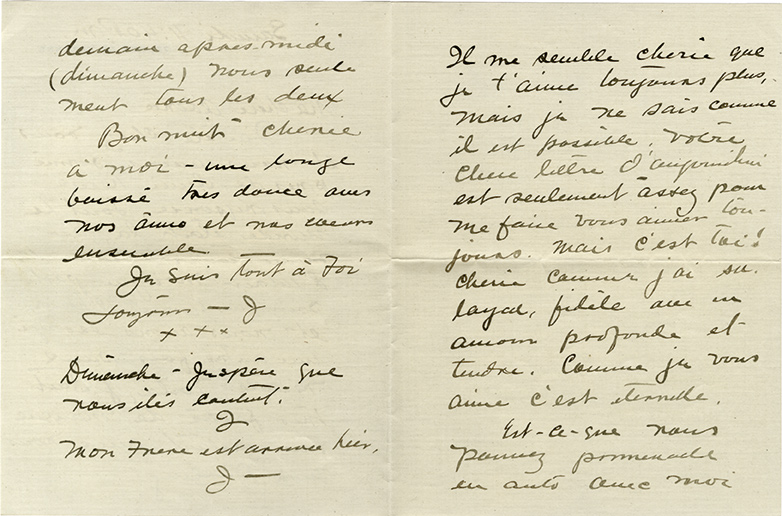 demain apres-midi
(dimanche) nous seule
ment tous les deux
Bon nuit cherie
a moi - une longe
baissé tres douce avec
nos âmes et nos coeurs
ensemble.
Je suis tout à Toi
Toujours — J
x x x
Dimanche - J'espère que
vous êtes content.
J
Mon Frere est arrivee hier.
J —
Il me semble cherie que
je t'aime toujours plus,
mais je ne sais comme
il est possible. Votre
chere lettre d'aujourdhui
est seulement assez pour
me faire vous aimer tou-
jours. Mais c'est toi!
cherie comme j'ai su.
layal, fidèle avec un
amour profonde et
tendre. Comme je vous
aime c'est eternelle.
Est-ce-que vous
pouvez promenade
en auto avec moi